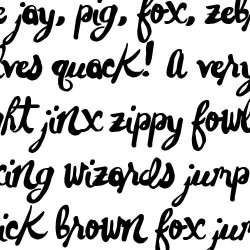 e jay, pig, fox, zeb
lves quack! A very
ght jinx zippy fowl
king wizards jump
ick brown fox jum